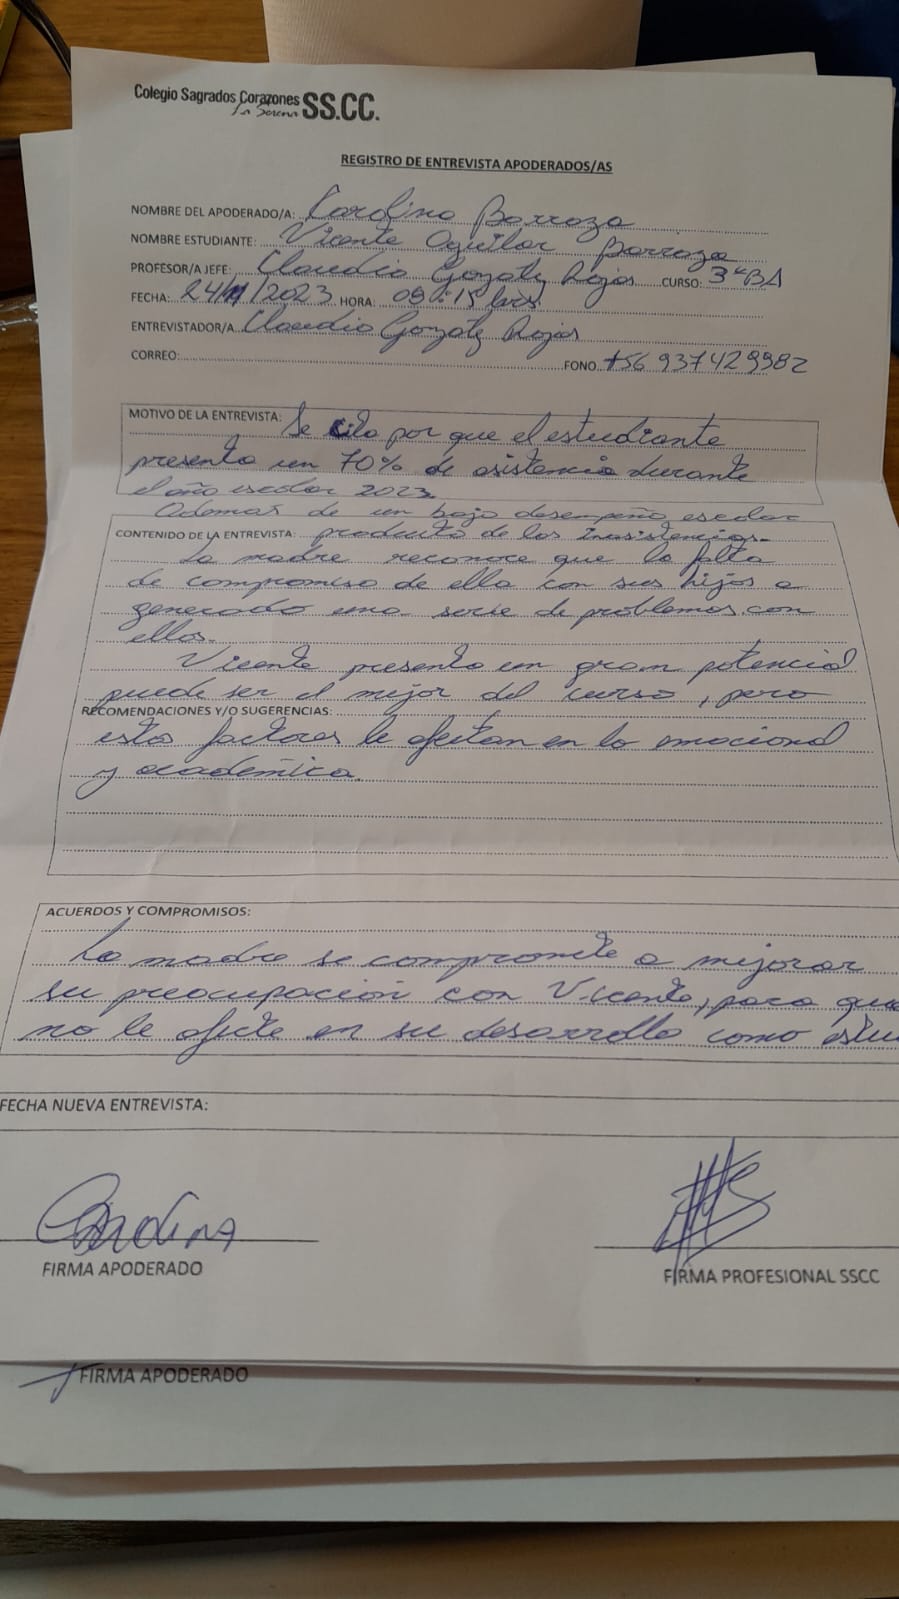 Colegio Sagrados Corazones SS.CC.
La Serena
REGISTRO DE ENTREVISTA APODERADOS/AS
NOMBRE DEL APODERADO/A: Carolina Barraza
NOMBRE ESTUDIANTE: Vicente Aguilar Barraza
PROFESOR/A JEFE: Claudio Gonzalez Rojas CURSO: 3°BA
FECHA: 24/11/2023 HORA: 08:15 hrs.
ENTREVISTADOR/A Claudio Gonzalez Rojas
CORREO: FONO +56 937429982
MOTIVO DE LA ENTREVISTA: Se cita por que el estudiante
presenta un 70% de asistencia durante
el año escolar 2023.
Ademas de un bajo desempeño escolar
CONTENIDO DE LA ENTREVISTA: producto de las inasistencias.
La madre reconoce que la falta
de compromiso de ella con sus hijos a
generado una serie de problemas con
ellos.
Vicente presenta un gran potencial
puede ser el mejor del curso, pero
RECOMENDACIONES Y/O SUGERENCIAS:
estos factores le afectan en lo emocional
y académica.
ACUERDOS Y COMPROMISOS:
La madre se compromete a mejorar
su preocupación con Vicente, para que
no le afecte en su desarrollo como estu
FECHA NUEVA ENTREVISTA:
Carolina
FIRMA APODERADO
FIRMA PROFESIONAL SSCC
FIRMA APODERADO